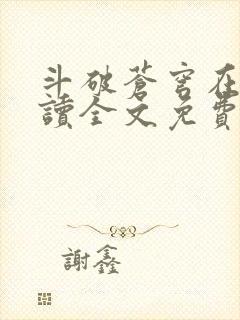 斗破蒼穹在
讀全文免費
謝鑫